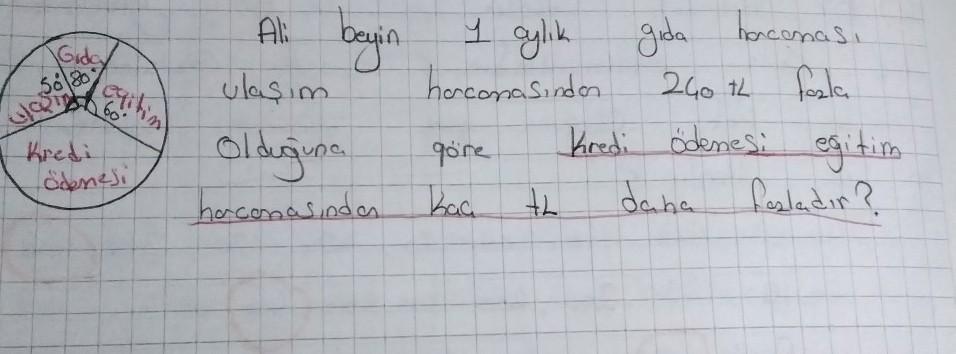 Gıda
50° 80°
ulaşım eğitim
60°
Kredi
ödemesi
Ali beyin 1 aylık gıda harcaması
ulaşım harcamasından 240 tL fazla
Olduğuna göre Kredi ödemesi eğitim
harcamasından kaç tL daha fazladır?